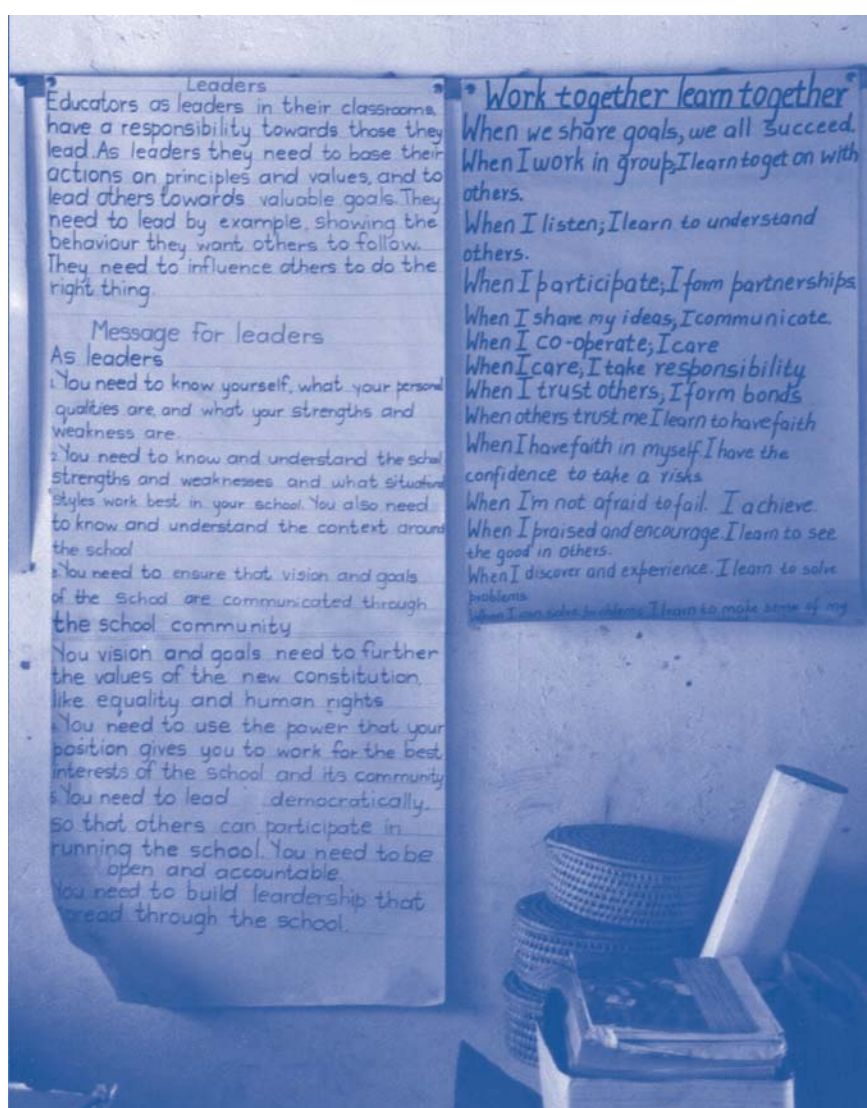 Leaders
Educators as leaders in their classrooms,
have a responsibility towards those they
lead. As leaders they need to base their
actions on principles and values, and to
lead others towards valuable goals. They
need to lead by example, showing the
behaviour they want others to follow.
They need to influence others to do the
right thing.
Message for leaders
As leaders
1. You need to know yourself, what your personal
qualities are, and what your strengths and
weakness are.
2. You need to know and understand the school
strengths and weaknesses and what
styles work best in your school. You also need
to know and understand the context around
the school
You need to ensure that vision and goals
of the school are communicated through
the school community
You vision and goals need to further
the values of the new constitution,
like equality and human rights
You need to use the power that your
position gives you to work for the best
interests of the school and its community
5. You need to lead democratically,
so that others can participate in
running the school. You need to be
open and accountable.
You need to build leardership that
spread through the school.
Work together learn together
When we share goals, we all succeed.
When I work in group, I learn to get on with
others.
When I listen; I learn to understand
others.
When I participate; I form partnerships
When I share my ideas, I communicate.
When I co-operate; I care
When I care, I take responsibility
When I trust others, I form bonds
When others trust me I learn to have faith
When I have faith in myself. I have the
confidence to take a risks
When I'm not afraid to fail. I achieve.
When I praised and encourage. I learn to see
the good in others.
When I discover and experience. I learn to solve
problems
When I can solve problems I learn to make sense of my